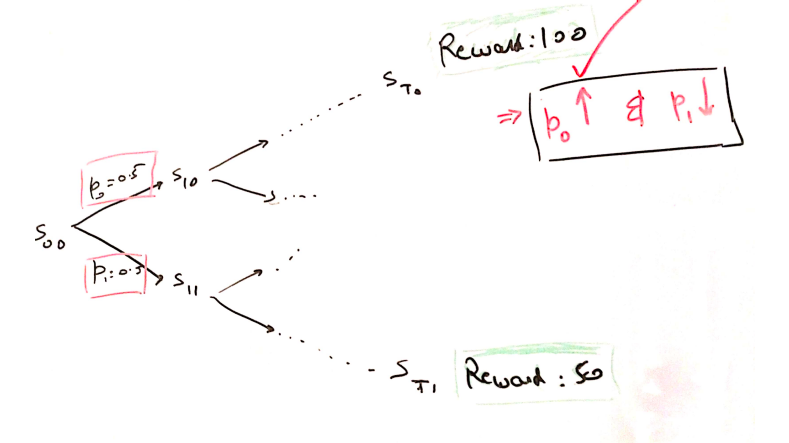 Reward:100
S_T0
⇒ p₀ ↑ & p₁ ↓
p₀=0.5
S₁₀
S₀₀
p₁=0.5
S₁₁
S_T1
Reward: 50